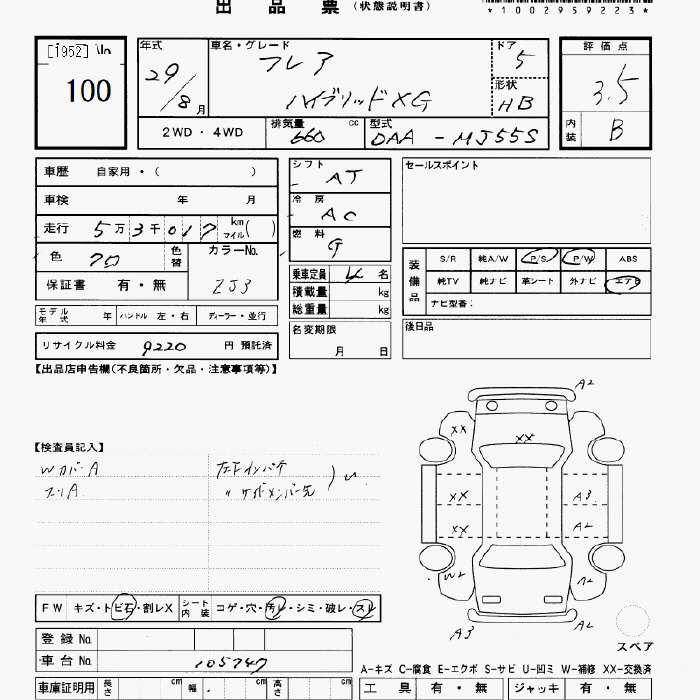 出 品 票 (状態説明書)
*1002959223*
[1952]
100
年式 29/8月
車名・グレード フレア
ハイブリッドXG
ドア 5
形状 HB
評価点 3.5
内装 B
2WD・4WD
排気量 660 cc
型式 DAA - MJ55S
車歴 自家用・( )
車検 年 月
走行 5万3千017 km マイル( )
色 クロ 色替
カラーNo. ZJ3
保証書 有・無
モデル年式 年 ハンドル 左・右 ディーラー・並行
リサイクル料金 9220 円 預託済
シフト AT
冷房 AC
燃料 G
乗車定員 4 名
積載量 kg
総重量 kg
名変期限
月 日
セールスポイント
装備品 S/R 純A/W P/S P/W ABS
純TV 純ナビ 革シート 外ナビ エアB
ナビ型番:
後日品
【出品店申告欄(不良箇所・欠品・注意事項等)】
【検査員記入】
WカバーA
スリA
左下インパチ
〃 サイドメンバー先
A2
XX
XX
XX
A3
XX
A2
W2
A2
A3
A2
スペア
FW キズ・トビ石・割レX シート内装 コゲ・穴・汚レ・シミ・破レ・スレ
登録No.
車台No. 105747
車庫証明用 長さ cm 幅 cm 高さ cm
A-キズ C-腐食 E-エクボ S-サビ U-凹ミ W-補修 XX-交換済
工具 有・無 ジャッキ 有・無